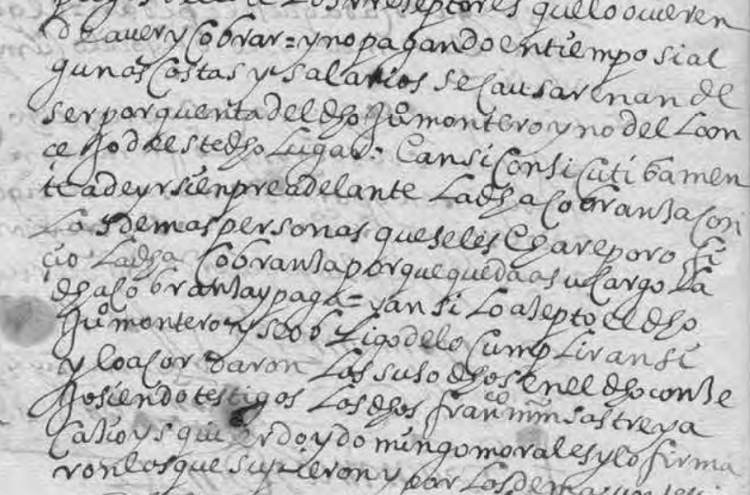 los rreseptores que lo ovieren
de aver y cobrar = y no pagando en tiempo si al
gunas costas y salarios se causaren an de
ser por quenta del dho Juº montero y no del con
cejo deste dho lugar = E ansi consicutibamen
te a de yr sienpre adelante la dha cobranza con
las demas personas que se les echare por ofi
çio la dha cobranza porque queda a su cargo la
dha cobranza y paga = y ansi lo azepto el dho
Juº montero y se obligo de lo cumplir ansi
y lo acordaron los suso dhos en el dho conze
jo siendo testigos los dhos franco mrn sastre y a
ysquierdo y domingo morales y lo firma
ron los que supieron y por los demas